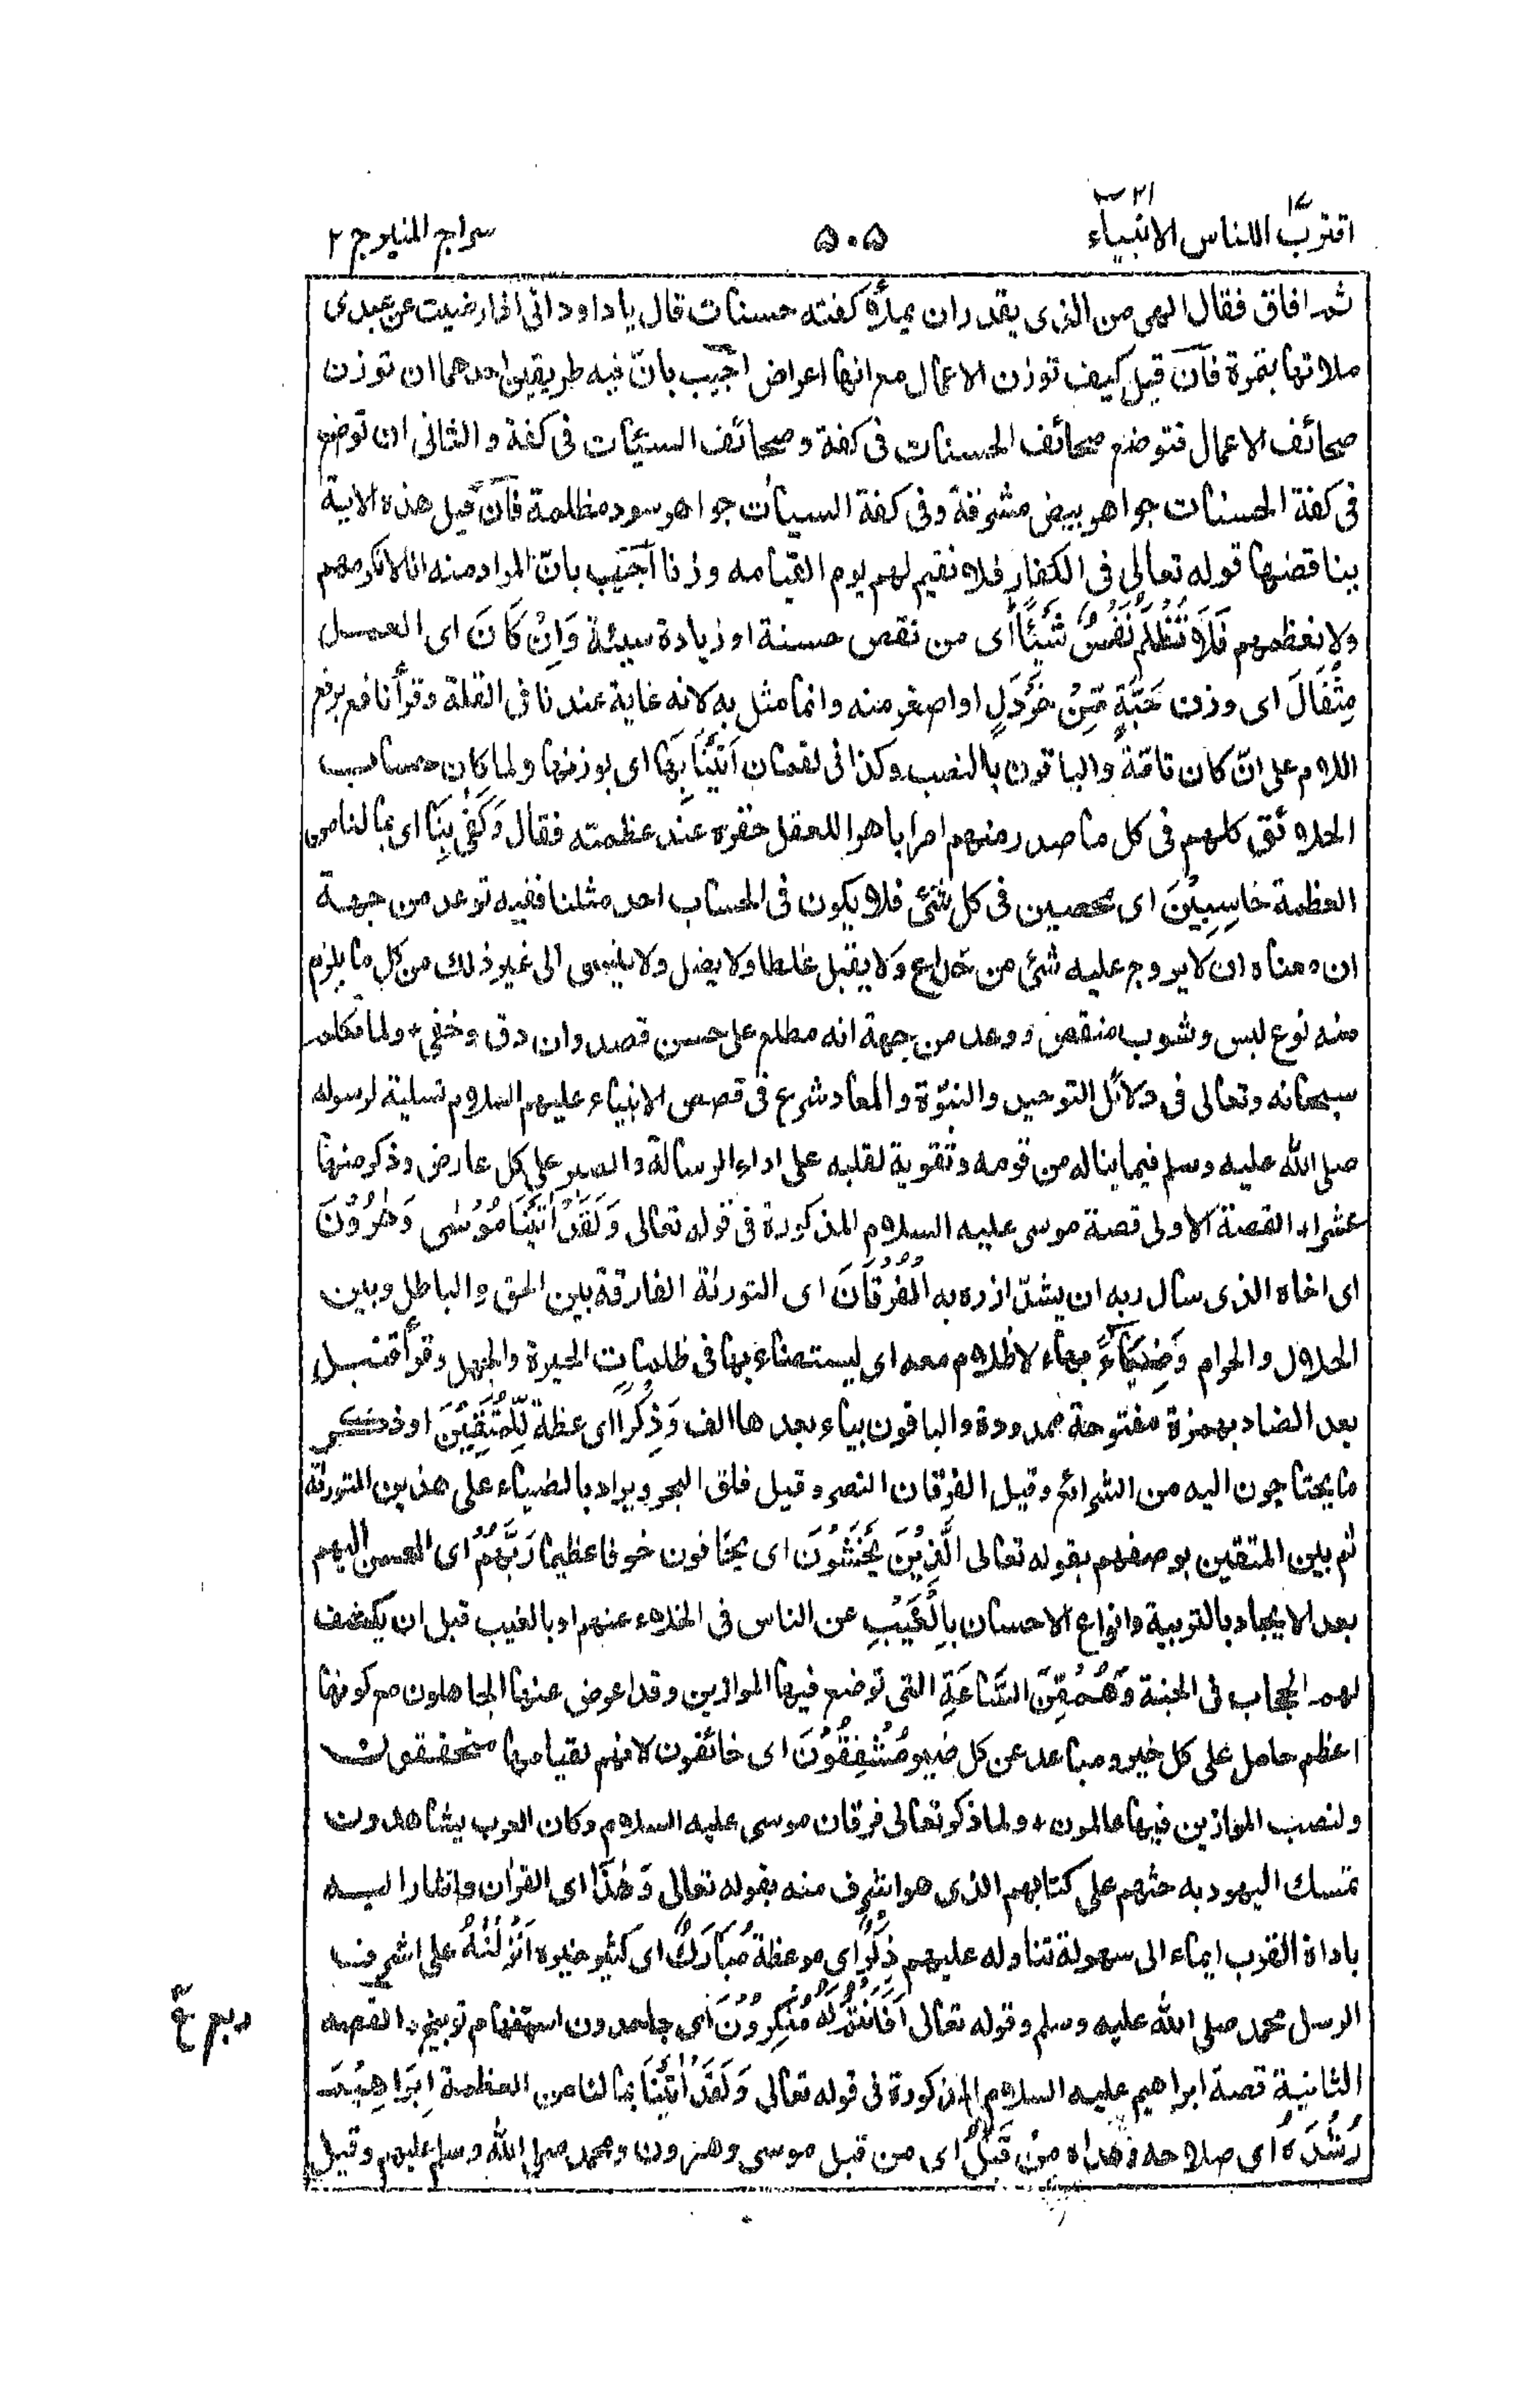 اقترب للناس ١٧ الانبياء ٢١
٥٠٥
سراج المنير ج ٢
ثم افاق فقال الهى من الذى يقدر ان يملأ كفته حسنات قال يا داود انى اذا رضيت عن عبدى
ملاتها بتمرة فان قيل كيف توزن الاعمال مع انها اعراض اجيب بانّ فيه طريقين احدهما ان توزن
صحائف الاعمال فتوضع صحائف الحسنات فى كفة وصحائف السيّئات فى كفة والثانى ان توضع
فى كفة الحسنات جواهر بيض مشرقة وفى كفة السيئات جواهر سود مظلمة فان قيل هذه الاية
يناقضها قوله تعالى فى الكفار فلا نقيم لهم يوم القيامه وزنا اجيب بانّ المراد منه انا لانكرمهم
ولا نعظمهم فَلَا تُظْلَمُ نَفْسٌ شَيْئًا اى من نقص حسنة او زيادة سيئة وَاِنْ كَانَ اى العمل
مِثْقَالَ اى وزن حَبَّةٍ مِّنْ خَرْدَلٍ او اصغر منه وانما مثل به لانه غاية عندنا فى القلة وقرأ نافع برفع
اللام على انّ كان تامّة والباقون بالنصب وكذا فى لقمان اَتَيْنَا بِهَا اى بوزنها ولما كان حساب
الخلائق كلهم فى كل ما صدر منهم امرا باهرا للعقل حقره عند عظمته فقال وَكَفٰى بِنَا اى بما لنا من
العظمة حَاسِبِيْنَ اى محصين فى كل شئ فلا يكون فى الحساب احد مثلنا ففيه توعد من جهة
ان معناه ان لا يروج عليه شئ من خداع ولا يقبل غلطا ولا يضل ولا ينسى الى غير ذلك من كل ما يلزم
منه نوع لبس وشوب منقص ووعد من جهة انه مطلع على حسن قصد وان دق وخفى ۰ ولما تكلم
سبحانه وتعالى فى دلائل التوحيد والنبوّة والمعاد شرع فى قصص الانبياء عليهم السلام تسلية لرسوله
صلى الله عليه وسلم فيما يناله من قومه وتقوية لقلبه على اداء الرسالة والصبر على كل عارض وذكر منها
عشرا۰ القصة الاولى قصة موسى عليه السلام المذكورة فى قوله تعالى وَلَقَدْ اٰتَيْنَا مُوْسٰى وَهٰرُوْنَ
اى اخاه الذى سال ربه ان يشدّ ازره به الْفُرْقَانَ اى التورٰىة الفارقة بين الحق والباطل وبين
الحلال والحرام وَضِيَآءً بها لا ظلام معه اى ليستضاء بها فى ظلمات الحيرة والجهل وقرأ قنبل
بعد الضاد بهمزة مفتوحة ممدودة والباقون بياء بعدها الف وَذِكْرًا اى عظة لِّلْمُتَّقِيْنَ او ذكر
ما يحتاجون اليه من الشرائع وقيل الفرقان النصر وقيل فلق البحر ويراد بالضياء على هذين التورٰىة
ثم بين المتقين بوصفهم بقوله تعالى الَّذِيْنَ يَخْشَوْنَ اى يخافون خوفا عظيما رَبَّهُمْ اى المحسن اليهم
بعد الايجاد بالتربية وانواع الاحسان بِالْغَيْبِ عن الناس فى الخلاء عنهم او بالغيب قبل ان يكشف
لهم الحجاب فى الجنة وَهُمْ مِّنَ السَّاعَةِ التى توضع فيها الموازين وقد اعرض عنها الجاهلون مع كونها
اعظم حامل على كل خير ومباعد عن كل ضير مُشْفِقُوْنَ اى خائفون لانهم لقيامها متحققون
ولنصب الموازين فيها عالمون ۰ ولما ذكر تعالى فرقان موسى عليه السلام وكان العرب يشاهدون
تمسك اليهود به حثهم على كتابهم الذى هو اشرف منه بقوله تعالى وَهٰذَا اى القراٰن واشار اليه
باداة القرب ايماء الى سهولة تناوله عليهم ذِكْرٌ اى موعظة مُّبَارَكٌ اى كثير خيره اَنْزَلْنٰهُ على اشرف
الرسل محمد صلى الله عليه وسلم وقوله تعالى اَفَاَنْتُمْ لَهٗ مُنْكِرُوْنَ اى جاحدون استفهام توبيخ۰ القصه
الثانية قصة ابراهيم عليه السلام المذكورة فى قوله تعالى وَلَقَدْ اٰتَيْنَا بما لنا من العظمة اِبْرَاهِيْمَ
رُشْدَهٗ اى صلاحه وهداه مِنْ قَبْلُ اى من قبل موسى وهٰرون ومحمد صلى الله وسلم عليهم وقيل
ربع ع